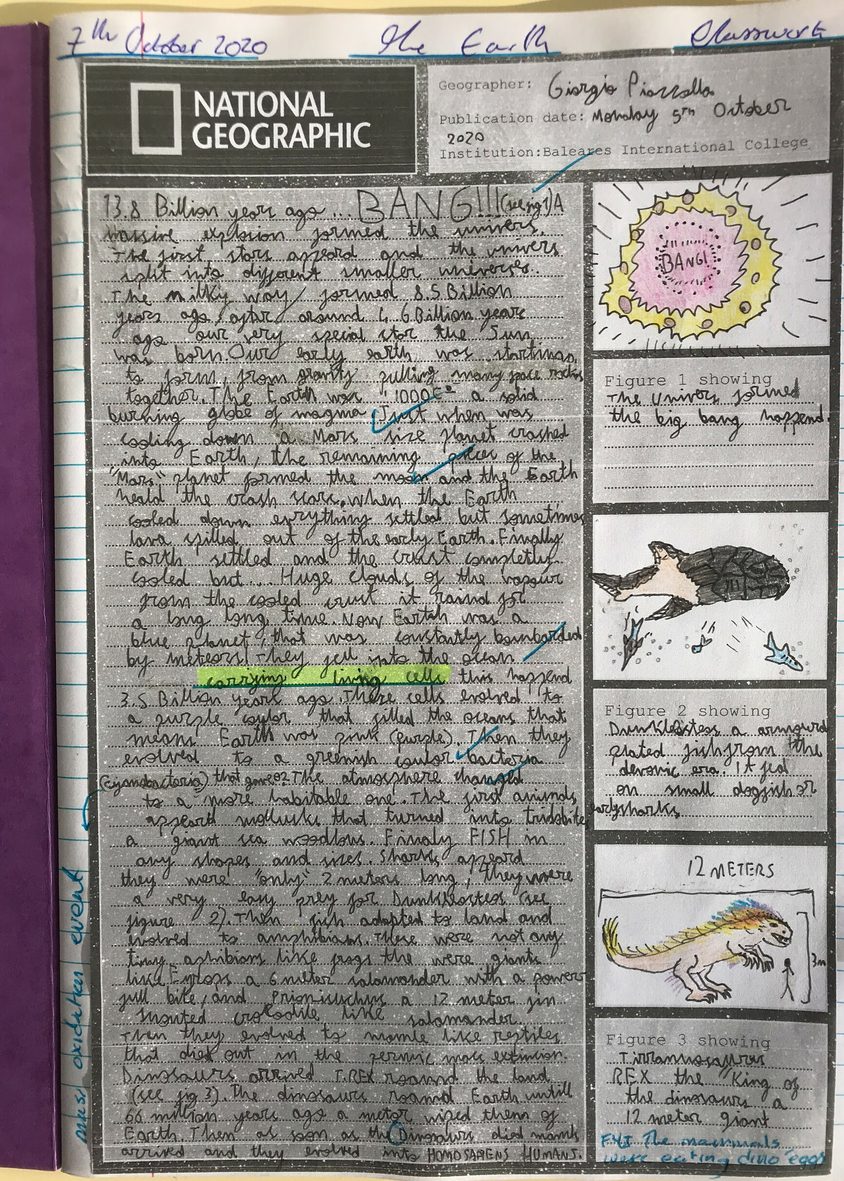 7th October 2020 The Earth Classwork
NATIONAL
GEOGRAPHIC
Geographer: Giorgio Piazzolla
Publication date: Monday 5th October
2020
Institution:Baleares International College
13.8 Billion years ago ... BANG!!! (see fig 1) A
massive explosion formed the univers.
The first stars appeard and the univers
split into different smaller universes.
The milky way formed 8.5 Billion
years ago, after around 4,6 Billion years
ago our very special star the Sun,
was born. Our early earth was
to form, from gravity pulling many space rocks
together. The Earth was a solid
burning globe of magma Just when was
cooling down a Mars size planet crashed
into Earth, the remaining pieces of the
"Mars" planet formed the moon and the Earth
herld the crash scars. When the Earth
cooled down everything settled but sometimes
lava spilled out of the early Earth. Finally
Earth settled and the crust completly
cooled but... Huge clouds of the vapour
from the cooled crust it raind for
a long long time. Now Earth was a
blue planet, that was constantly bombarded
by meteors! They fell into the ocean
carrying living cells this happend
3.5 Billion years ago. These cells evolved to
a purple coulor that filled the oceans that
means Earth was pink (purple). Then they
evolved to a greenish coulor bacteria
(cyanobacteria) that gave O2. The atmosphere changed
to a more habitable one. The first animals
appeard mollusks that turned into
a giant sea woodlous. Finaly FISH in
any shapes and sizes. Sharks appeard
they were "only" 2 meters long, they were
a very easy prey for Dunkleostes (see
figure 2). Then fish adapted to land and
evolved to amphibians. These were not any
tiny like frogs the were giants
like Eryops a 6 meter salamander with a power
full bite, and Prionisuchus a 12 meter
snouted crocodile like salamander.
Then they evolved to like reptiles
that died out in the permic mass extinsion.
Dinosaurs arrived T.REX roamd the land
(see fig 3). The dinosaurs roamd Earth untill
66 million years ago a metor wiped them of
Earth. Then as soon as the Dinosaurs died
arrived and they evolved into HOMOSAPIENS HUMANS.
mass oxidation event
BANG!
Figure 1 showing
The univers formed
the big bang happend.
Figure 2 showing
Dunkleostes a armourd
plated fish from the
devonic era. It fed
on small dogfish or
early sharks
12 METERS
3m
Figure 3 showing
REX the King of
the dinosaurs a
12 meter giant
FYI The mammals
were eating dino eggs